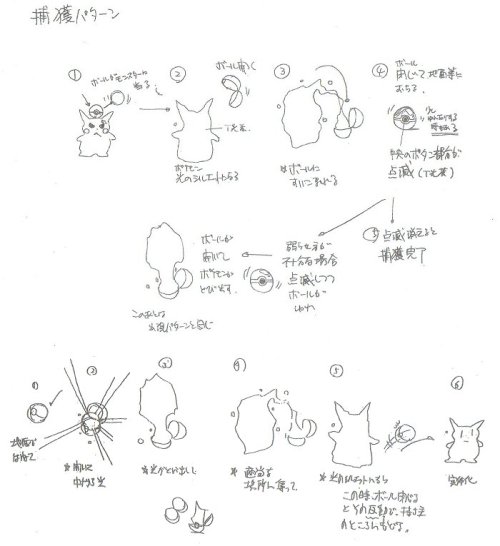 捕獲パターン
①
ボールがモンスターに
当る。
②
ボール開く
下光
ポケモン
光のシルエットになる
③
※ボールに
すいこまれる
④
ボール
閉じて地面等に
おちる。
中央のボタン部分が
点滅(下光)
⑤点滅消えると
捕獲完了
弱らせ方が
不十分な場合
点滅しつつ
ボールが
ゆれ
ボールが
開いて
ポケモンが
とび出す。
このあとは
出現パターンと同じ
①
地面などに
当って
②
※開いて
中から光
③
※光がとび出して
④
※適当な
場所に集って
⑤
※光のシルエットになる
この時、ボール閉じる
とその反動で、持ち主
のところにもどる。
⑥
実体化